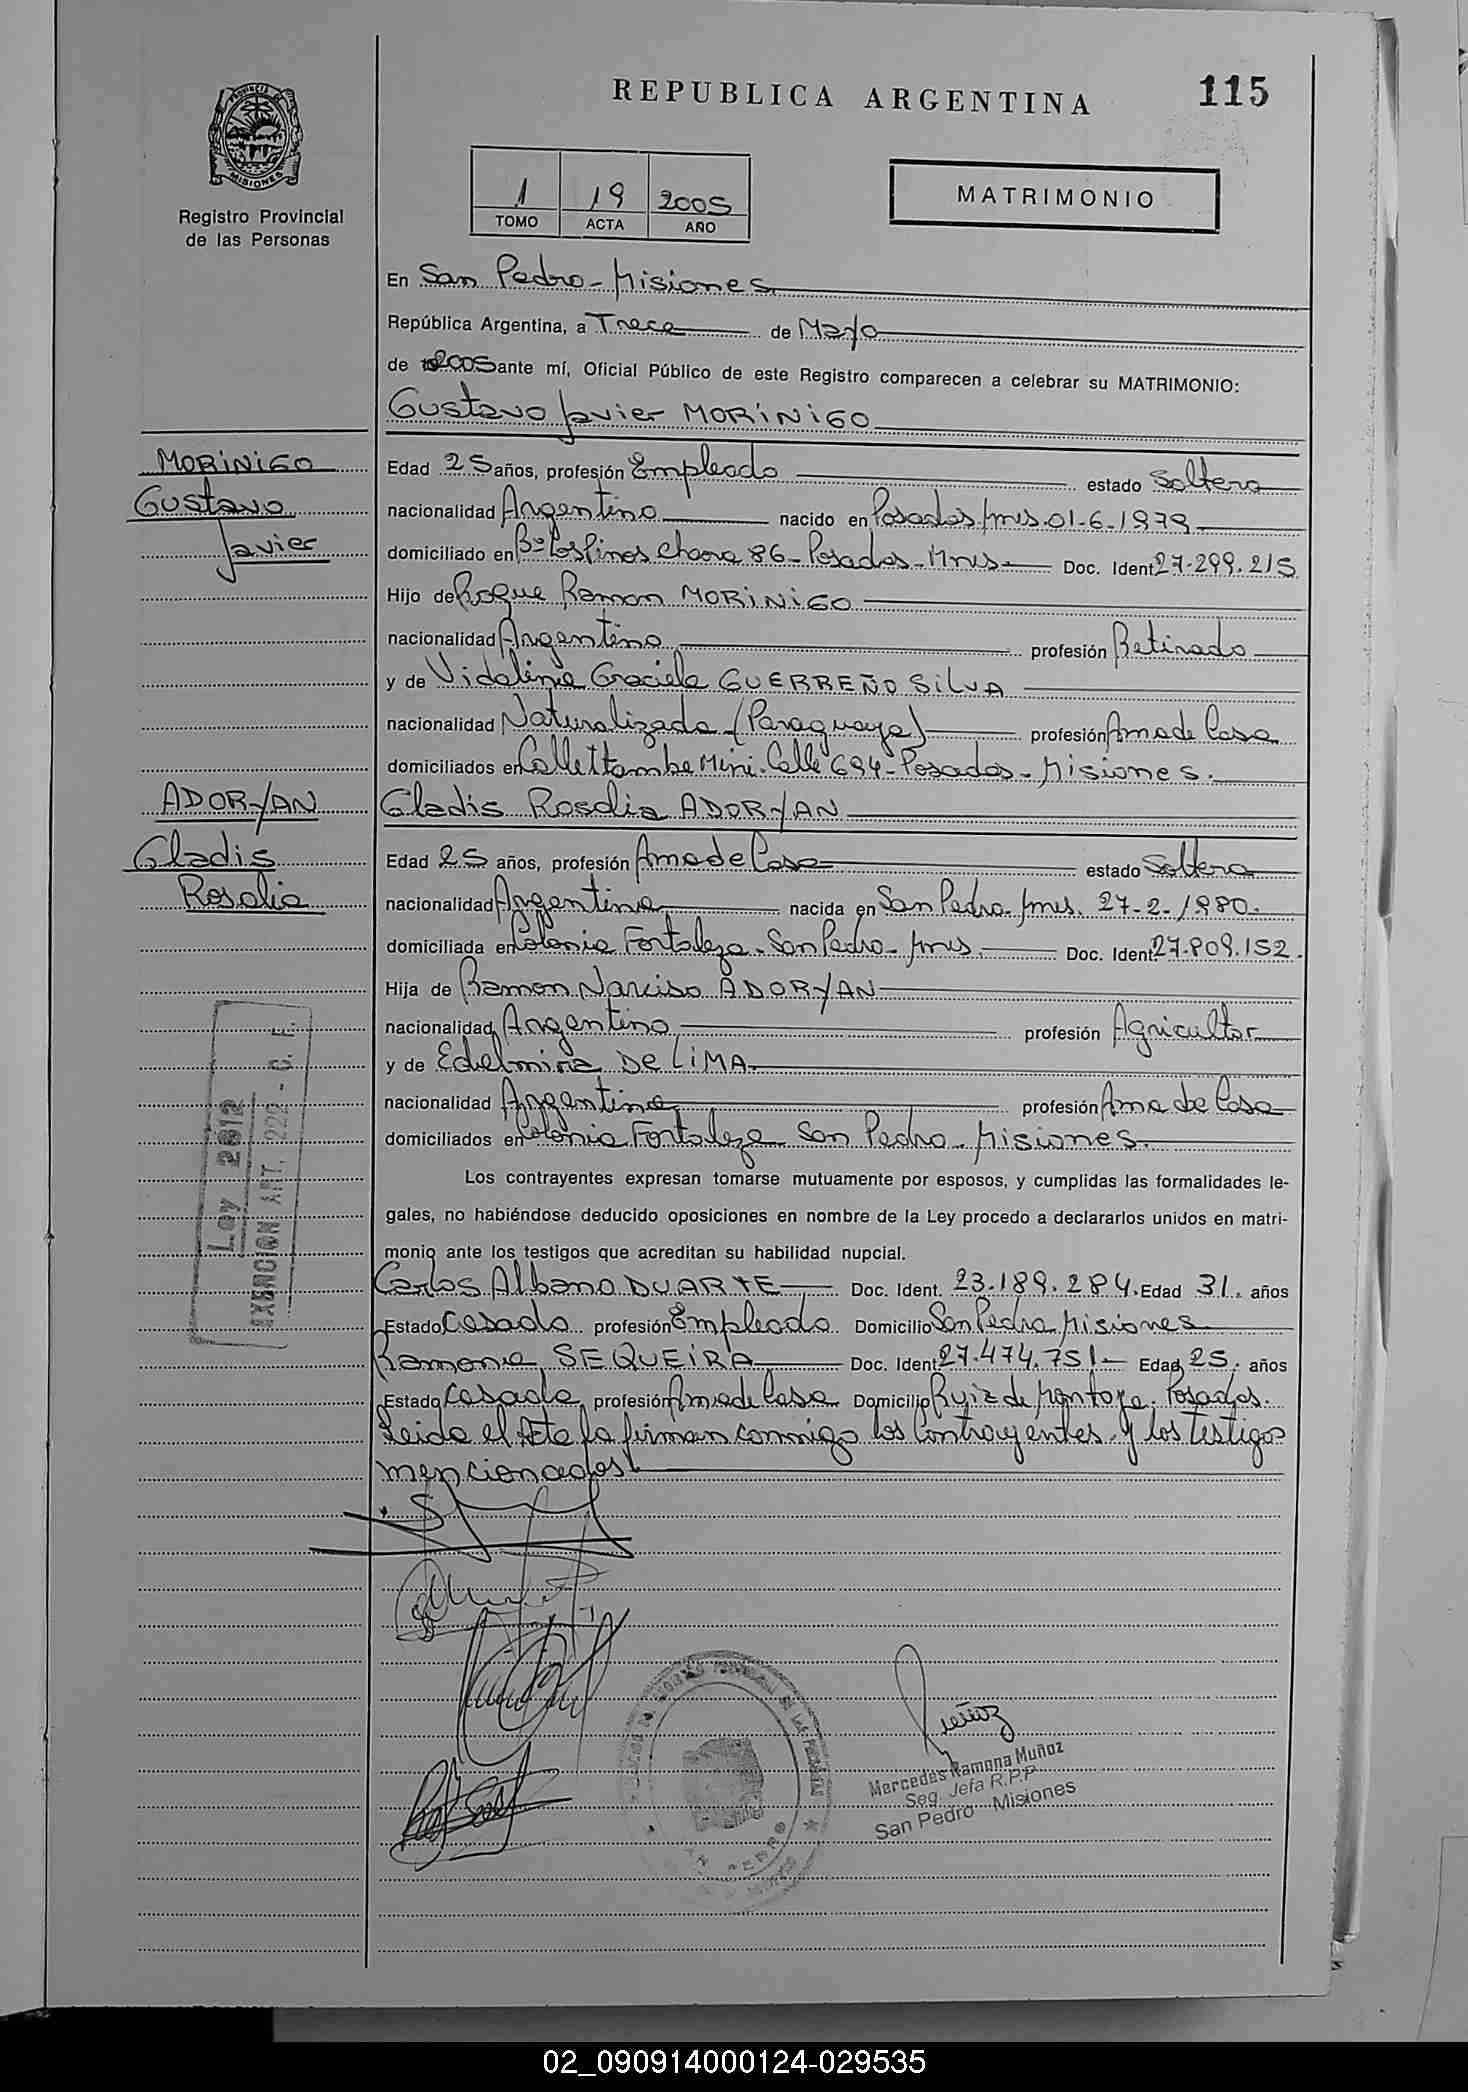 REPUBLICA ARGENTINA
115
PROVINCIA DE
MISIONES
Registro Provincial
de las Personas
1 19 2005
TOMO ACTA AÑO
MATRIMONIO
En San Pedro - Misiones
República Argentina, a Trece de Mayo
de 2005 ante mí, Oficial Público de este Registro comparecen a celebrar su MATRIMONIO:
Gustavo Javier MORINIGO
MORINIGO
Gustavo
Javier
Edad 25 años, profesión Empleado estado Soltero
nacionalidad Argentino nacido en Posadas, Mnes. 01-6-1979
domiciliado en Bº Los Pinos Chacra 86 - Posadas - Mnes Doc. Ident 27.299.215
Hijo de Roque Ramon MORINIGO
nacionalidad Argentino profesión Retirado
y de Vidalina Graciela GUERREÑO SILVA
nacionalidad Naturalizada - (Paraguaya) profesión Ama de Casa
domiciliados en Calle 694 - Posadas - Misiones.
ADORYAN
Gladis
Rosalia
Gladis Rosalia ADORYAN
Edad 25 años, profesión Ama de Casa estado Soltera
nacionalidad Argentina nacida en San Pedro - Mnes. 27-2-1980.
domiciliada en Colonia Fortaleza - San Pedro - Mnes. Doc. Ident 27.809.152.
Hija de Ramon Narciso ADORYAN
nacionalidad Argentino profesión Agricultor
y de Edelmira DE LIMA
nacionalidad Argentina profesión Ama de Casa
domiciliados en Colonia Fortaleza San Pedro - Misiones.
Los contrayentes expresan tomarse mutuamente por esposos, y cumplidas las formalidades le-
gales, no habiéndose deducido oposiciones en nombre de la Ley procedo a declararlos unidos en matri-
monio ante los testigos que acreditan su habilidad nupcial.
Carlos Albano DUARTE Doc. Ident. 23.189.284. Edad 31. años
Estado Casado profesión Empleado Domicilio San Pedro Misiones
Ramona SEQUEIRA Doc. Ident 27.474.751 Edad 25. años
Estado Casada profesión Ama de Casa Domicilio Ruiz de Montoya. Posadas.
Leida el Acta la firman conmigo los Contrayentes y los testigos
mencionados
Ley 2812
EXENCION ART. 222 - C. F.
Muñoz
Mercedes Ramona Muñoz
Seg. Jefa R.P.P
San Pedro Misiones
02_090914000124-029535